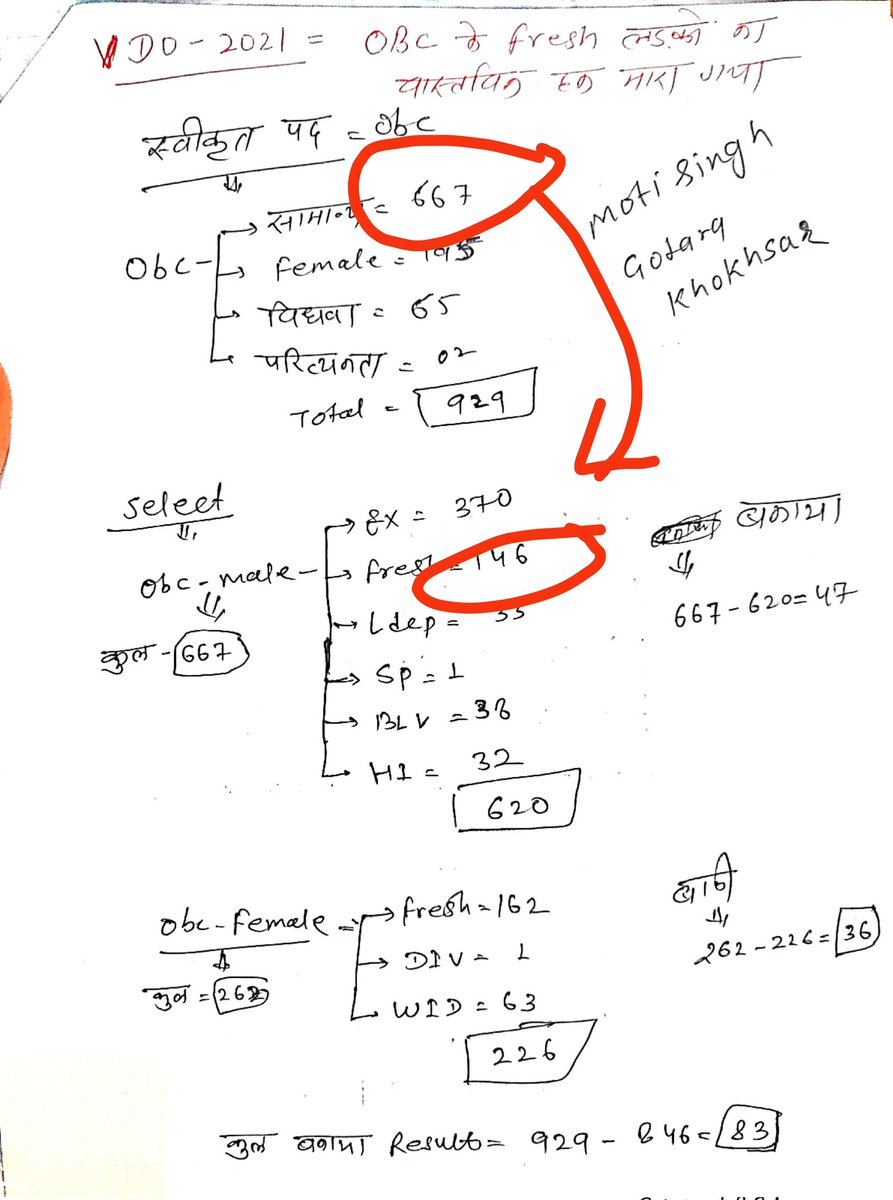 VDO-2021 = OBC के fresh लड़को का
वास्तविक हक मारा गया
स्वीकृत पद = Obc
सामान्य = 667
Obc -
Female = 195
विधवा = 65
परित्यक्ता = 02
Total = 929
Moti Singh
Gotara
Khokhsar
select
Obc-male -
कुल - 667
Ex = 370
fresh = 146
Ldep = 33
SP = 1
BLV = 38
HI = 32
620
बकाया
667-620=47
Obc-Female =
कुल = 262
fresh = 162
DIV = 1
WID = 63
226
बाकी
262-226= 36
कुल बकाया Result = 929 - 846 = 83